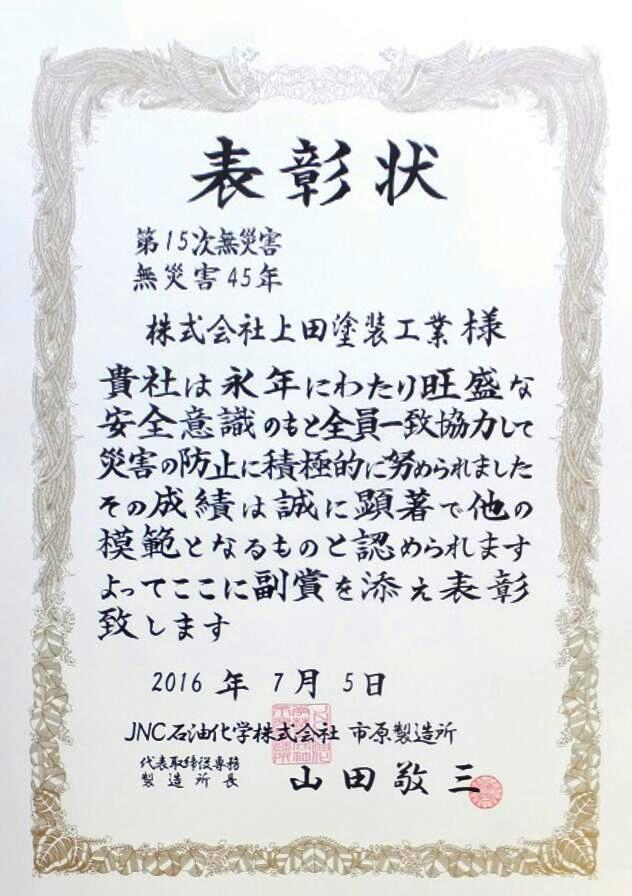 表彰状
第15次無災害
無災害45年
株式会社上田塗装工業様
貴社は永年にわたり旺盛な
安全意識のもと全員一致協力して
災害の防止に積極的に努められました
その成績は誠に顕著で他の
模範となるものと認められます
よってここに副賞を添え表彰
致します
2016年7月5日
JNC石油化学株式会社 市原製造所
代表取締役専務
製造所長
山田敬三